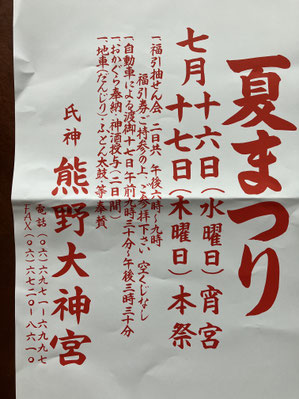 夏まつり
七月十六日（水曜日）宵宮
十七日（木曜日）本祭
一、福引抽せん会 二日共 午後 時〜九時
福引券ご持参の上、ご参拝下さい 空くじなし
一、自動車による渡御十七日午前九時三十分〜午後三時三十分
一、おかぐら奉納・神酒授与（二日間）
一、地車（だんじり）・ふとん太鼓・等奉賛
氏神 熊野大神宮
電話（〇六）六九七一-六九九七
FAX（〇六）六七二〇-八六一〇